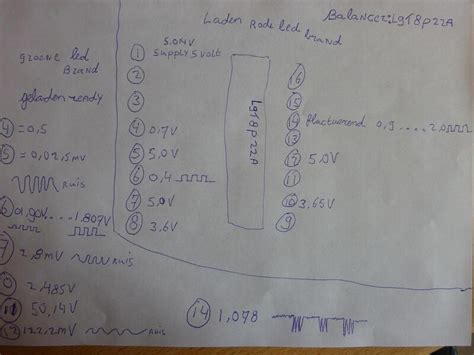 Laden Rode led brand
Balancer: LgT8p22A
groene led
Brand
geladen-ready
④ = 0,5
⑤ = 0,02,5mv
Ruis
⑥ 0,90v....1.807V
⑦ 2,8mV Ruis
2,485V
⑪ 50,14V
⑫ 122,2mv Ruis
① 5.04V
supply 5volt
②
③
④ 0,7V
⑤ 5.0V
⑥ 0,4
⑦ 5.0V
⑧ 3.6V
LgT8p22A
⑯
⑮
⑭ fluctuerend 0,9....2.0
⑬
⑫ 5.0V
⑪
⑩ 3,65V
⑨
⑭ 1,078